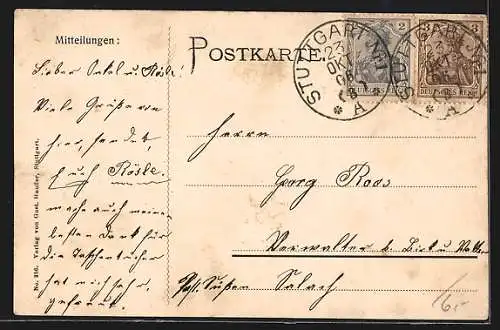 Mitteilungen:
POSTKARTE.
STUTTGART No 1
23.
OKT
06
A
2
DEUTSCHES REICH
3
DEUTSCHES REICH
Lieber Onkel u. Rösle!
Viele Grüße von
hier, sendet
Euch Rösle.
mache auch meinen
besten Dank für
die Taschentücher
hat mich sehr
gefreut.
Herrn
Georg Roos
Verwalter b.
Post. Süßen Salach
No. 256. Verlag von Gust. Haufler, Stuttgart.